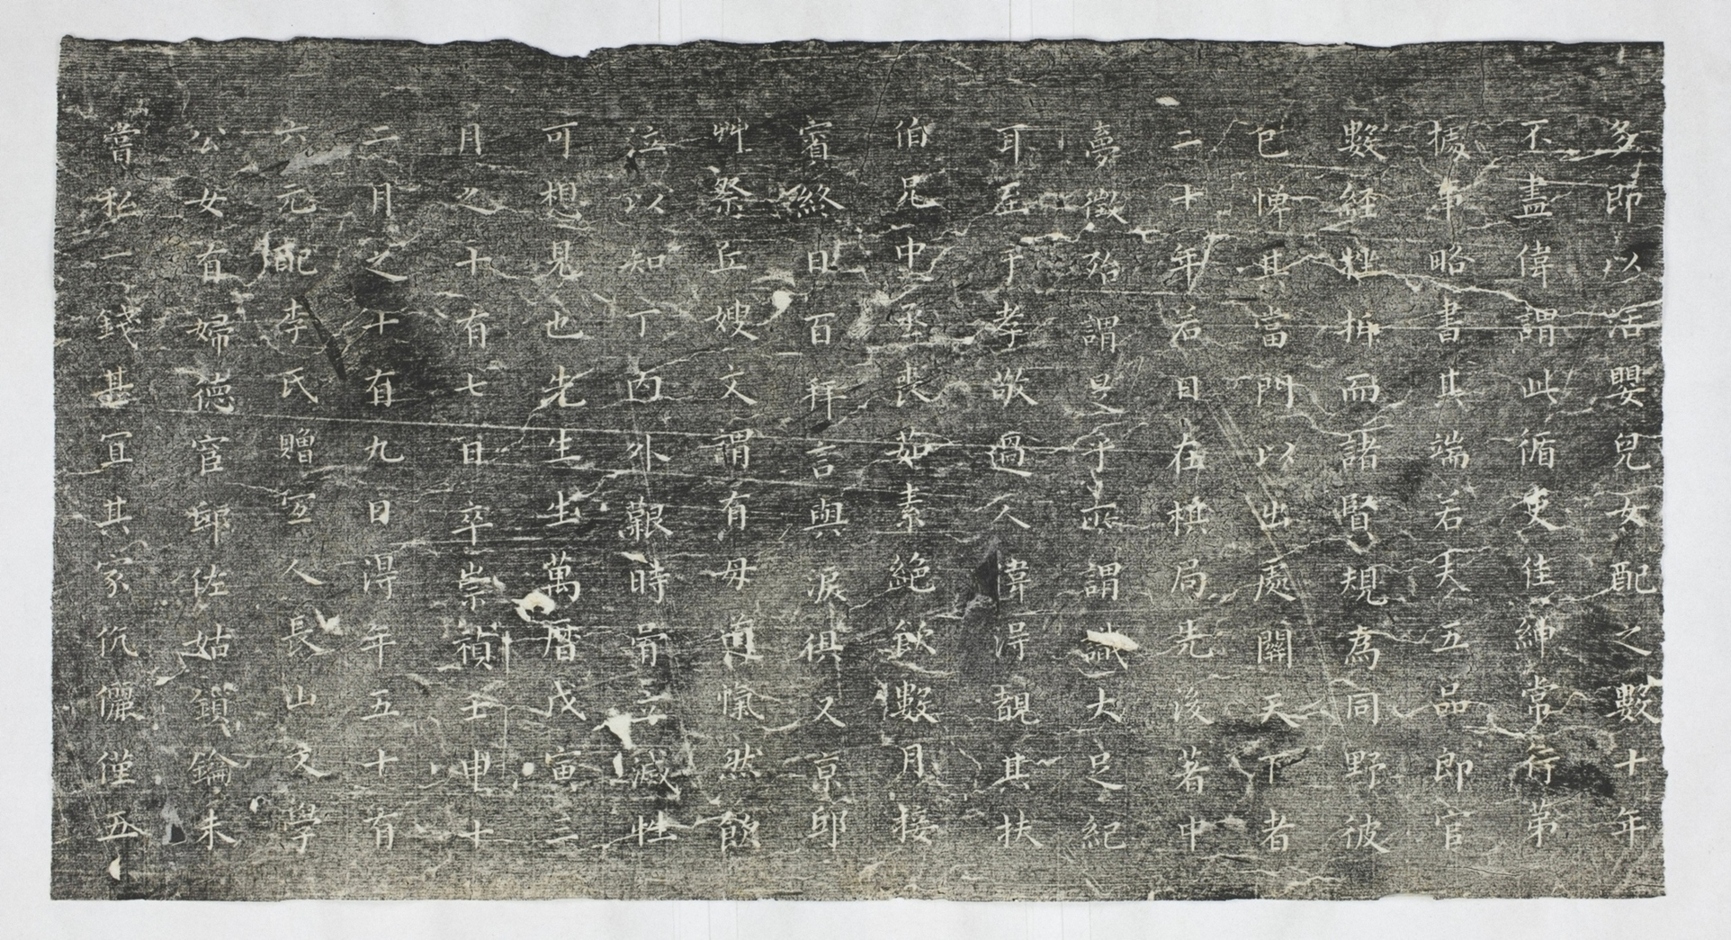 多即以活嬰兒女配之數十年
不盡偉謂此循吏佳紳常行第
據事略書其端若夫五品郎官
數経牲拆而諸賢規為同野彼
已悼其當門以出處關天下者
二十年名目在棋局先後著中
夢徵殆謂是乎亟謂識大足紀
耳至于孝敬過人偉得覯其扶
伯兄中丞喪茹素絕飲數月接
賓終日百拜言與淚俱又京邸
艸祭丘嫂文謂有母道愾然餘
泣以知丁內外艱時骨立滅性
可想見也先生生萬曆戊寅三
月之十有七日卒崇禎壬申十
二月之十有九日得年五十有
六元配李氏贈宜人長山文學
公女有婦德宦邸佐姑鎖鑰未
嘗私一錢甚宜其家伉儷僅五